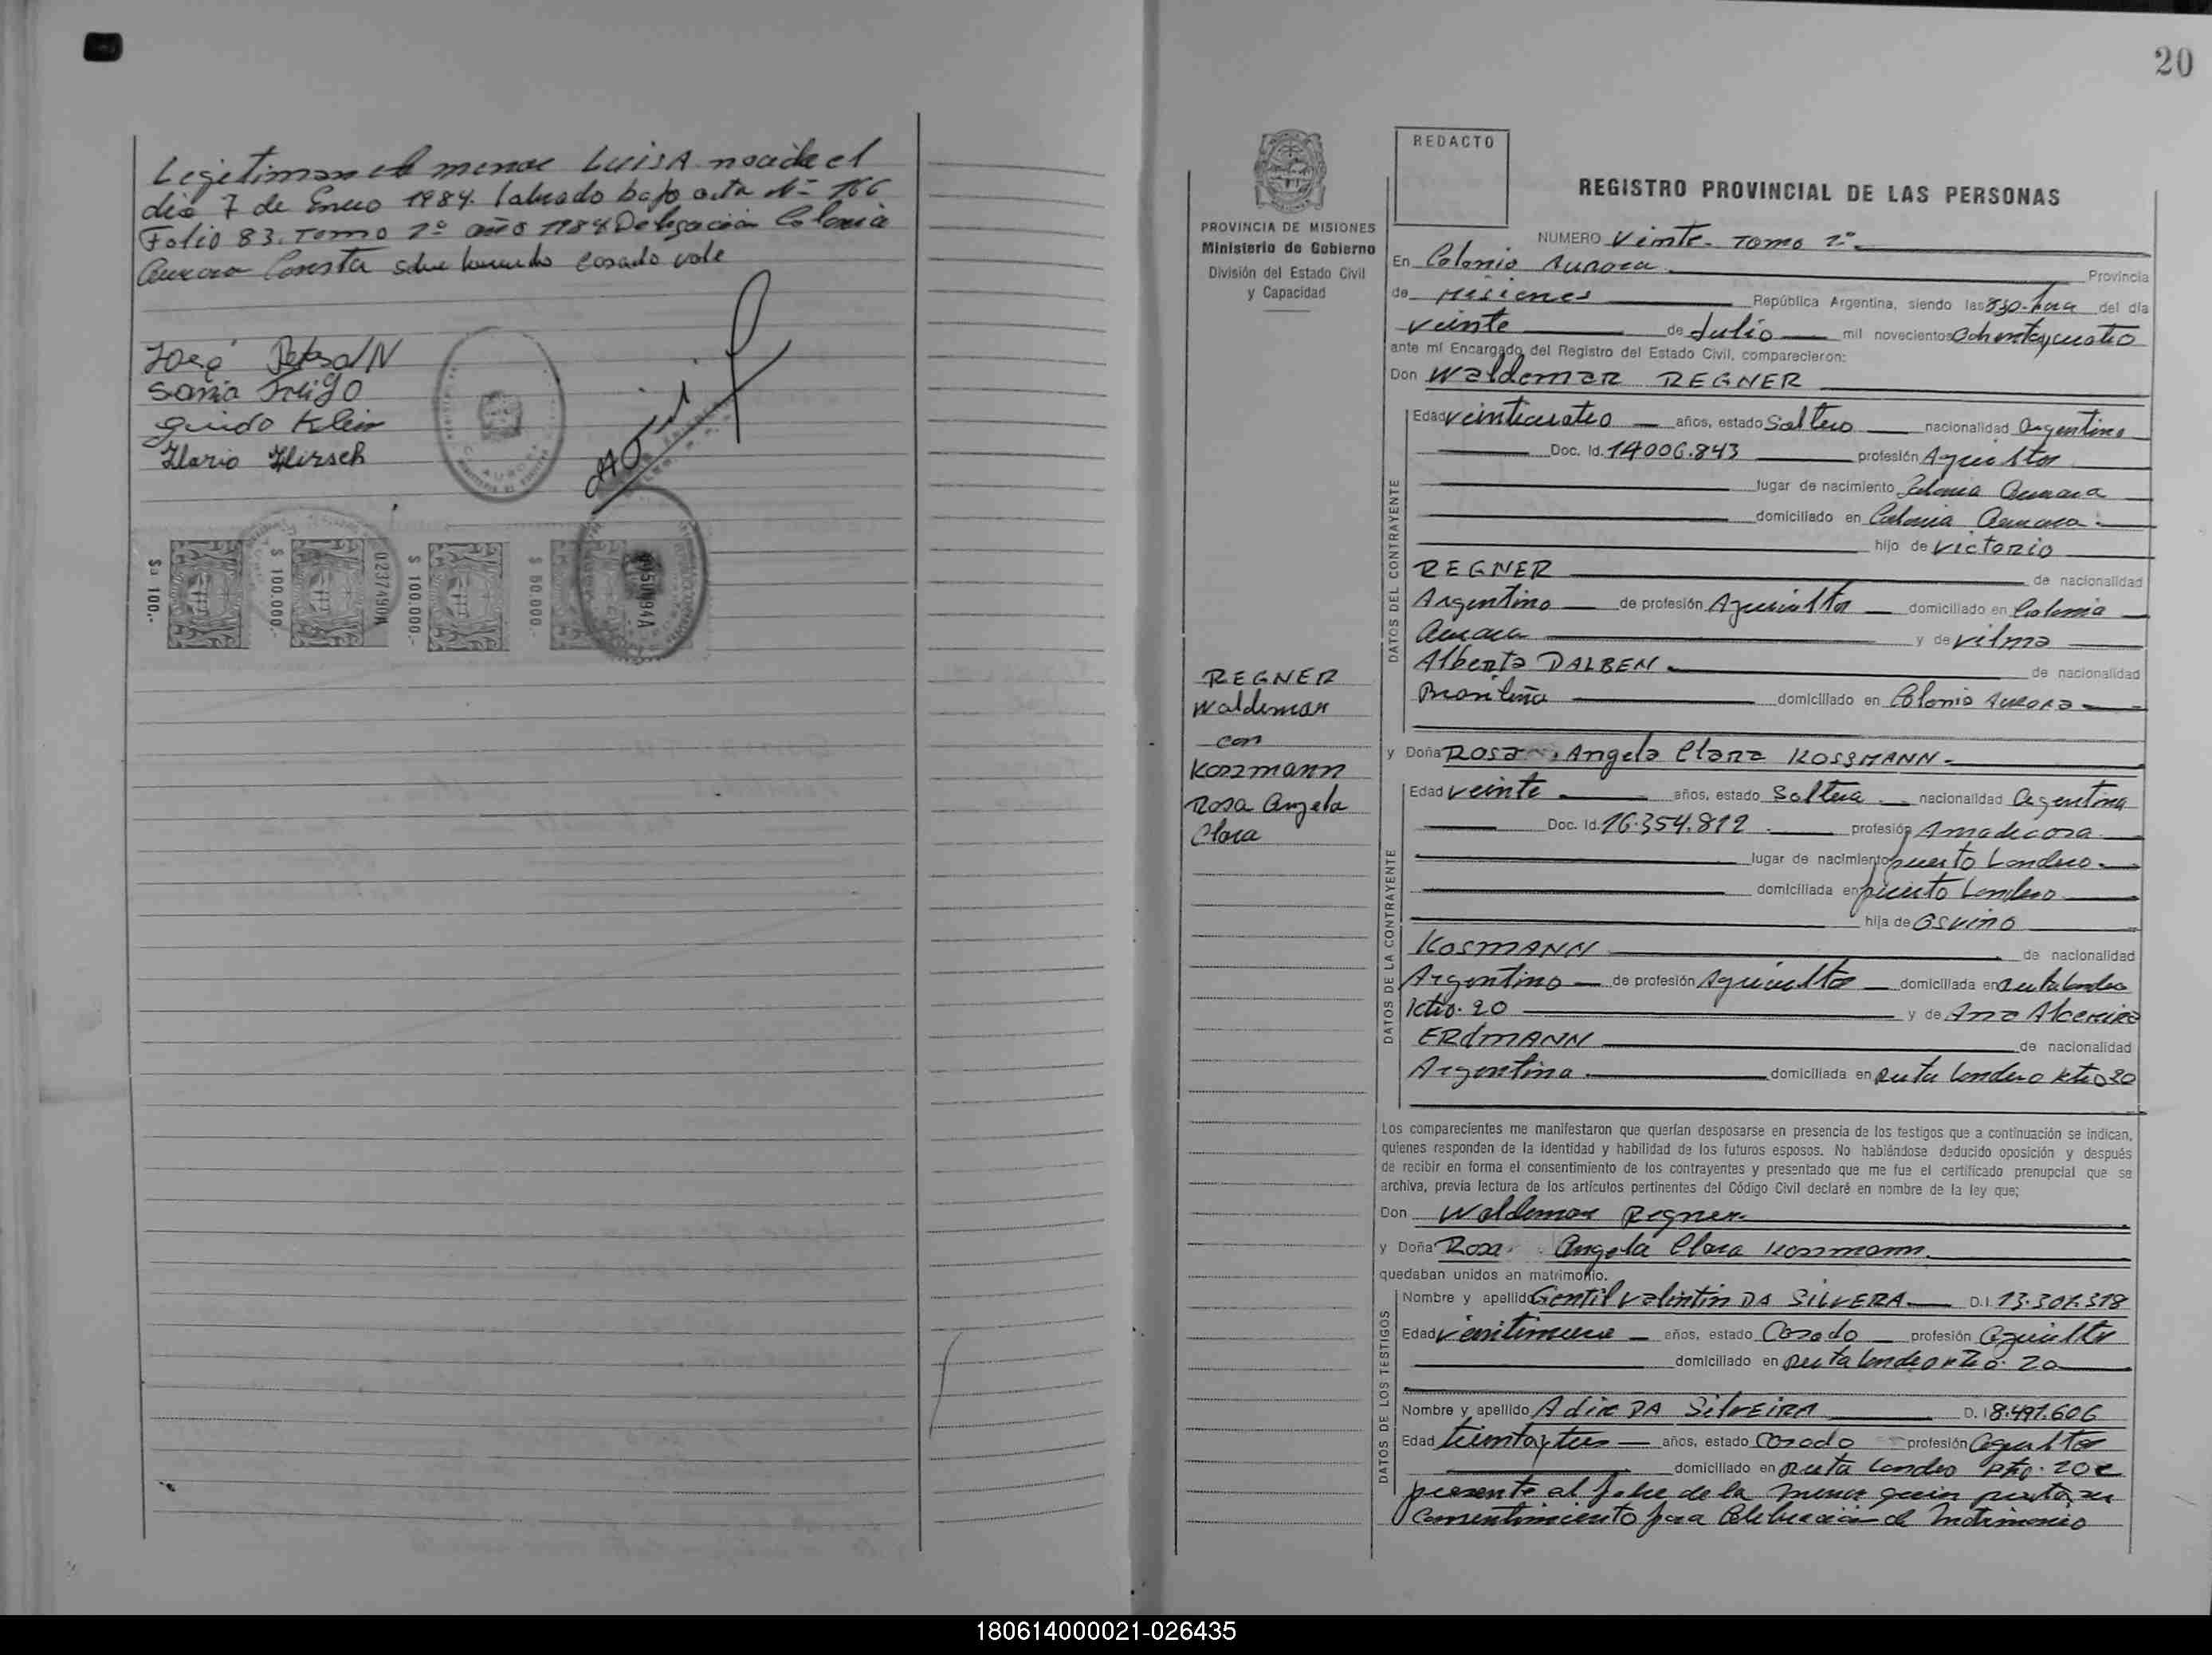 Legitiman el menor LUISA nacida el
dia 7 de Enero 1984. labrado bajo acta Nº 166
Folio 83. Tomo 1º año 1984 Delegación Colonia
Aurora Consta sobre borrado casado vale
José PetersoN
Sonia Frigo
Guido Klein
Ilario Hirsch
$a 100.-
$ 100.000.-
0237490M
$ 100.000.-
$ 50.000.-
20
REDACTO
REGISTRO PROVINCIAL DE LAS PERSONAS
PROVINCIA DE MISIONES
Ministerio de Gobierno
División del Estado Civil
y Capacidad
NUMERO Veinte - Tomo 1º
En Colonia Aurora Provincia
de Misiones República Argentina, siendo las 830-hora del día
veinte de Julio mil novecientos ochentaycuatro
ante mí Encargado del Registro del Estado Civil, comparecieron:
Don Waldemar REGNER
DATOS DEL CONTRAYENTE
Edad veinticuatro años, estado Soltero nacionalidad Argentino
Doc. Id. 14006.843 profesión Agricultor
lugar de nacimiento Colonia Aurora
domiciliado en Colonia Aurora.
hijo de Victorio
REGNER de nacionalidad
Argentino de profesión Agricultor domiciliado en Colonia
Aurora y de Vilma
Alberta DALBEN. de nacionalidad
Brasileña domiciliado en Colonia Aurora
REGNER
Waldemar
con
Kossmann
Rosa Angela
Clara
y Doña Rosa Angela Clara KOSSMANN-
DATOS DE LA CONTRAYENTE
Edad veinte años, estado Soltera nacionalidad Argentina
Doc. Id. 16.354.812 profesión Amadecasa
lugar de nacimiento puerto Londero.
domiciliada en puerto Londero
hija de Osvino
KOSMANN de nacionalidad
Argentino de profesión Agricultor domiciliada en Ruta Londero
Ktro. 20 y de Ana Alcereira
ERdMANN de nacionalidad
Argentina domiciliada en Ruta Londero Ktro 20
Los comparecientes me manifestaron que querían desposarse en presencia de los testigos que a continuación se indican,
quienes responden de la identidad y habilidad de los futuros esposos. No habiéndose deducido oposición y después
de recibir en forma el consentimiento de los contrayentes y presentado que me fue el certificado prenupcial que se
archiva, previa lectura de los artículos pertinentes del Código Civil declaré en nombre de la ley que;
Don Waldemar Regner.
y Doña Rosa Angela Clara Kossmann.
quedaban unidos en matrimonio.
DATOS DE LOS TESTIGOS
Nombre y apellido Gentil Valintin DA SILVERA D.I. 13.301.318
Edad veintinueve años, estado Casado profesión Agricultor
domiciliado en Ruta Londero Ktro. 20
Nombre y apellido Adir DA SilvEIRA D. I 8.491.606
Edad treintaytres años, estado Casado profesión Agricultor
domiciliado en Ruta Londero Ktro. 20 e
presente el padre de la menor quien presta su
Consentimiento para Celebración de Matrimonio
180614000021-026435